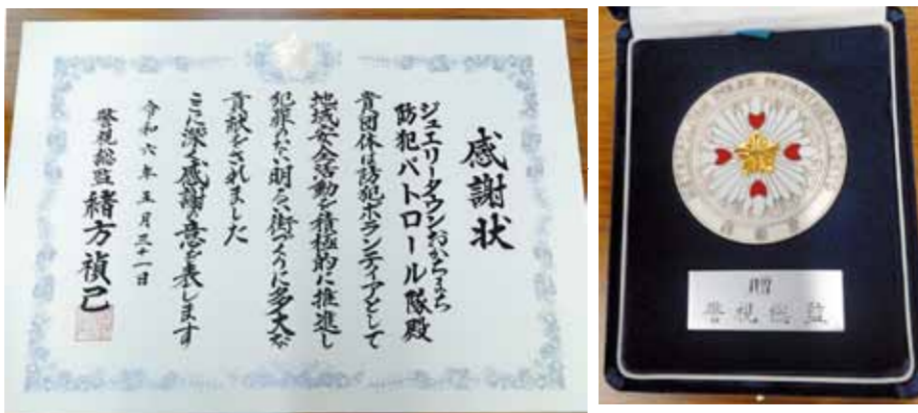 感謝状
ジュエリータウンおかちまち
防犯パトロール隊殿
貴団体は防犯ボランティアとして
地域安全活動を積極的に推進し
犯罪のない明るい街づくりに多大な
貢献をされました
ここに深く感謝の意を表します
令和六年五月三十一日
警視総監 緒方禎己
METROPOLITAN POLICE DEPARTMENT
贈
警視総監